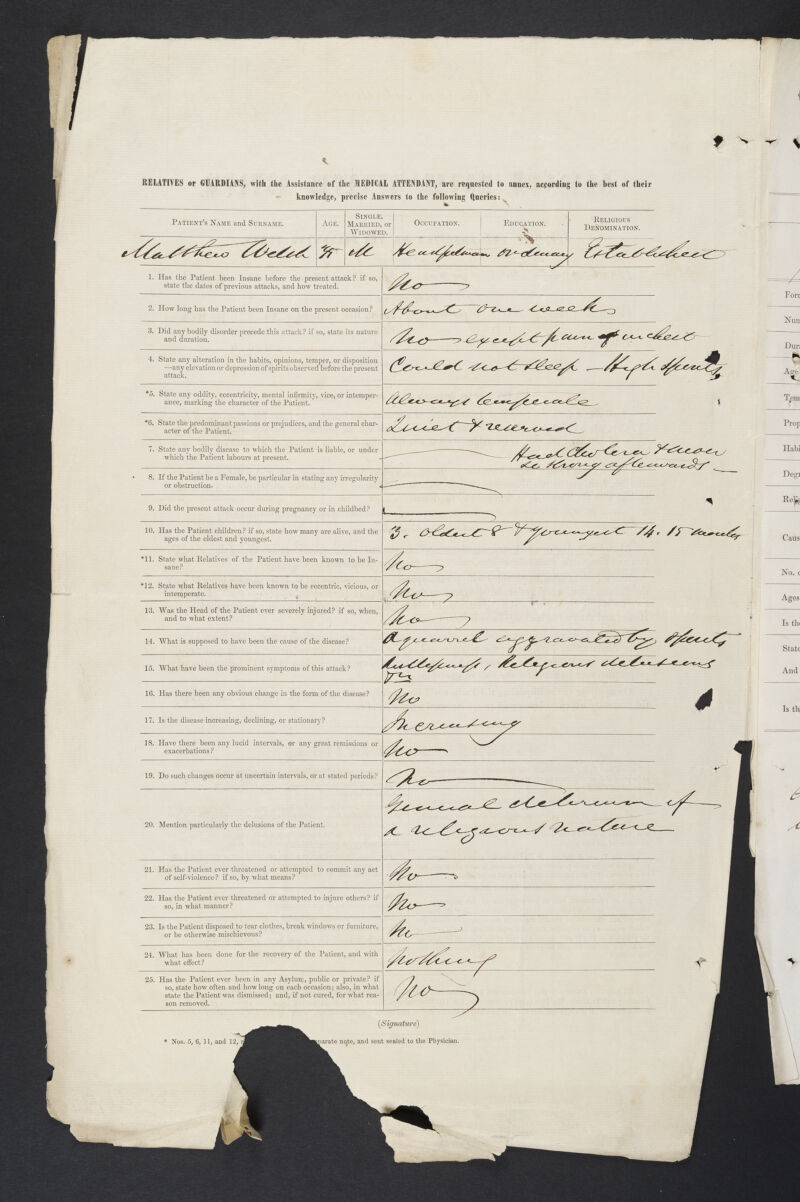 RELATIVES or GUARDIANS, with the Assistance of the MEDICAL ATTENDANT, are requested to annex, according to the best of their
knowledge, precise Answers to the following Queries:
PATIENT'S NAME and SURNAME. AGE. SINGLE, MARRIED, or WIDOWED. OCCUPATION. EDUCATION. RELIGIOUS DENOMINATION.
Matthew Welsh M ordinary Established
1. Has the Patient been Insane before the present attack? if so,
state the dates of previous attacks, and how treated.
No
2. How long has the Patient been Insane on the present occasion?
About one week
3. Did any bodily disorder precede this attack? if so, state its nature
and duration.
No except pain in chest
4. State any alteration in the habits, opinions, temper, or disposition
—any elevation or depression of spirits observed before the present
attack.
Could not sleep – High spirits
*5. State any oddity, eccentricity, mental infirmity, vice, or intemper-
ance, marking the character of the Patient.
Always temperate
*6. State the predominant passions or prejudices, and the general char-
acter of the Patient.
Quiet & reserved
7. State any bodily disease to which the Patient is liable, or under
which the Patient labours at present.
Had Cholera & never
so strong afterwards
8. If the Patient be a Female, be particular in stating any irregularity
or obstruction.
9. Did the present attack occur during pregnancy or in childbed?
10. Has the Patient children? if so, state how many are alive, and the
ages of the eldest and youngest.
3. oldest 8 & youngest 14. 15 months
*11. State what Relatives of the Patient have been known to be In-
sane?
No
*12. State what Relatives have been known to be eccentric, vicious, or
intemperate.
No
13. Was the Head of the Patient ever severely injured? if so, when,
and to what extent?
No
14. What is supposed to have been the cause of the disease?
A quarrel aggravated by spirits
15. What have been the prominent symptoms of this attack?
Restlessness, Religious delusions
16. Has there been any obvious change in the form of the disease?
No
17. Is the disease increasing, declining, or stationary?
Increasing
18. Have there been any lucid intervals, or any great remissions or
exacerbations?
No
19. Do such changes occur at uncertain intervals, or at stated periods?
No
20. Mention particularly the delusions of the Patient.
General delirium of
a religious nature
21. Has the Patient ever threatened or attempted to commit any act
of self-violence? if so, by what means?
No
22. Has the Patient ever threatened or attempted to injure others? if
so, in what manner?
No
23. Is the Patient disposed to tear clothes, break windows or furniture,
or be otherwise mischievous?
No
24. What has been done for the recovery of the Patient, and with
what effect?
Nothing
25. Has the Patient ever been in any Asylum, public or private? if
so, state how often and how long on each occasion; also, in what
state the Patient was dismissed; and, if not cured, for what rea-
son removed.
No
(Signature)
* Nos. 5, 6, 11, and 12, note, and sent sealed to the Physician.